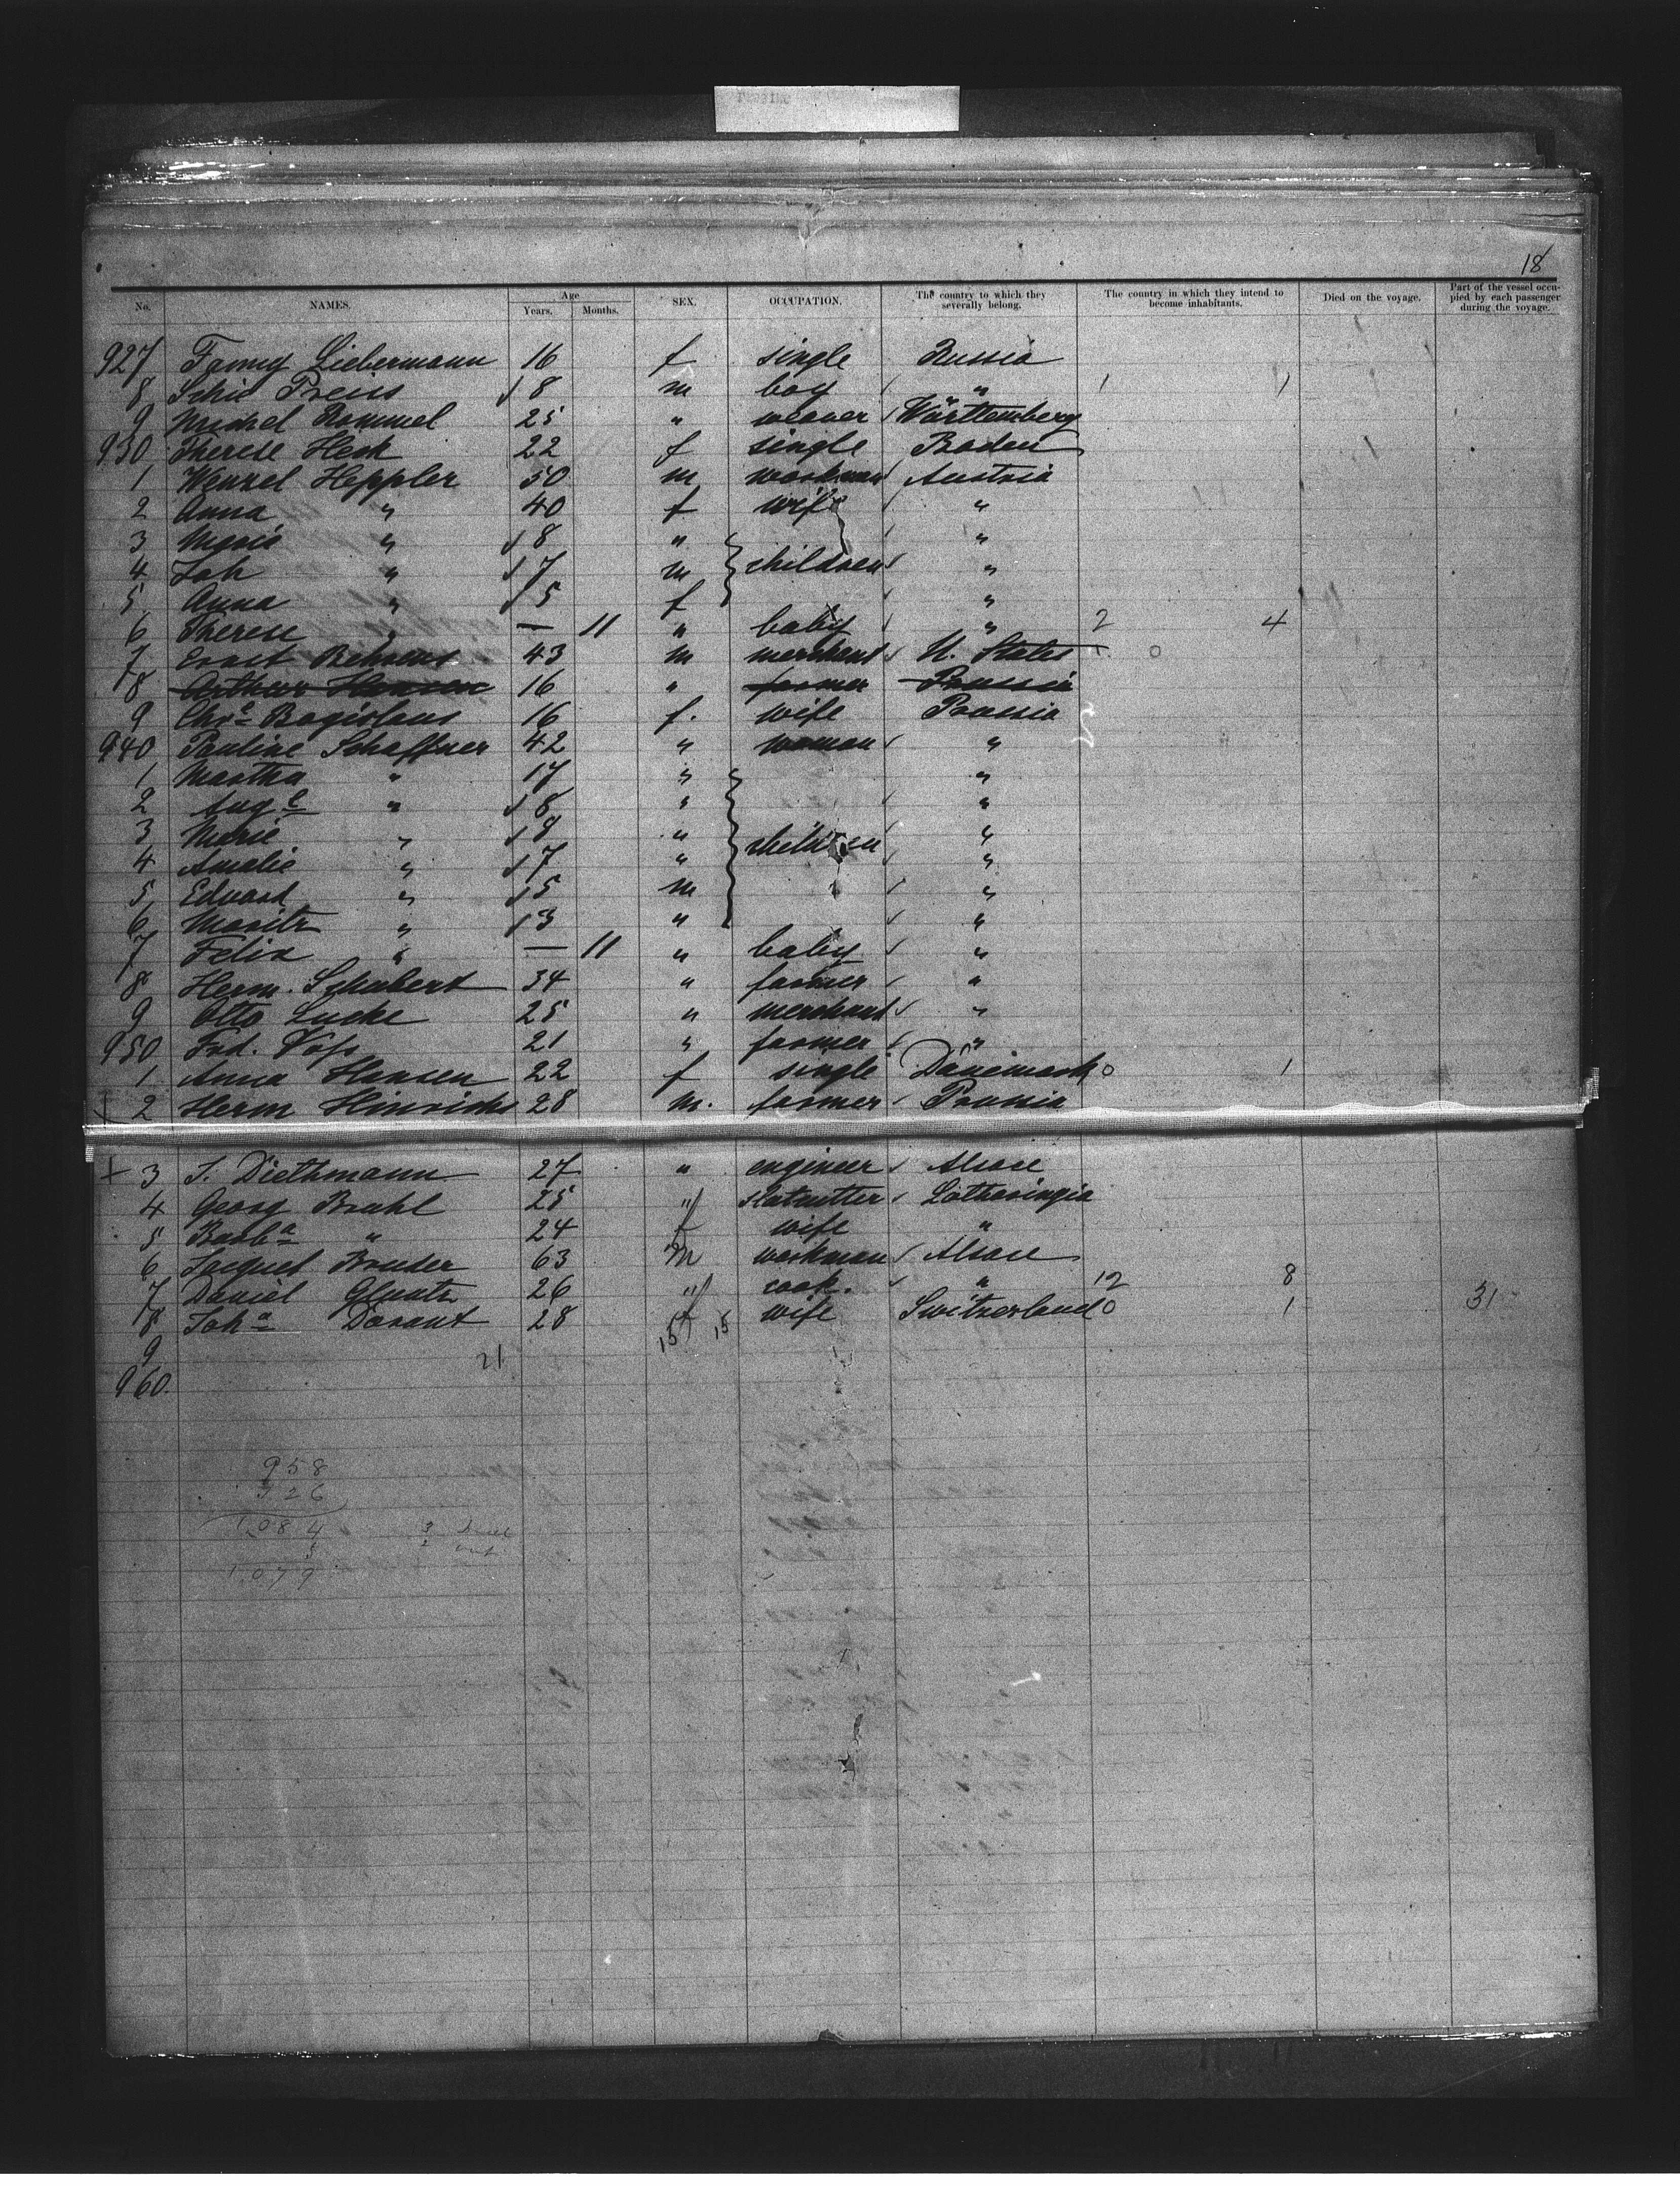 18
No. NAMES. Age Years. Months. SEX. OCCUPATION. The country to which they severally belong. The country in which they intend to become inhabitants. Died on the voyage. Part of the vessel occupied by each passenger during the voyage.
927 Fanny Liebermann 16 f single Russia
8 Preiss 8 m boy " 1 1
9 Michel Rommel 25 " weaver Württemberg
930 Therese Heck 22 f single Baden
1 Wenzel Heppler 50 m workman Austria
2 Anna " 40 f wife "
3 Marie " 8 " "
4 Joh " 7 m children "
5 Anna " 5 f "
6 Therese " — 11 " baby " 2 4
7 Ernst Behrens 43 m merchant U. States 0
8 Arthur Hansen 16 " farmer Prussia
9 Chrs Bogislaus 16 f. wife Prussia
940 Pauline Schaffner 42 " woman "
1 Martha " 17 " "
2 Auge " 8 " "
3 Marie " 8 " children "
4 Amalie " 7 " "
5 Eduard " 5 m "
6 Moritz " 3 " "
7 Felix " — 11 " baby "
8 Herm. Schubert 34 " farmer "
9 Otto Lucke 25 " merchant "
950 Frd. Voss 21 " farmer "
1 Anna Hansen 22 f single Dänemark 0 1
+ 2 Herm Hinrichs 28 m. farmer Prussia
+ 3 J. Diethmann 27 " engineer Alsace
4 Georg Bruhl 25 " Lotharingia
5 Barba " 24 f wife "
6 Jacques Bruder 63 m workman Alsace
7 Daniel Gluntz 26 " cook. " 12 8
8 Joha Dorant 28 f wife Switzerland 0 1 31
9 21 15 15
960.
958
126
1.084
5
1.079